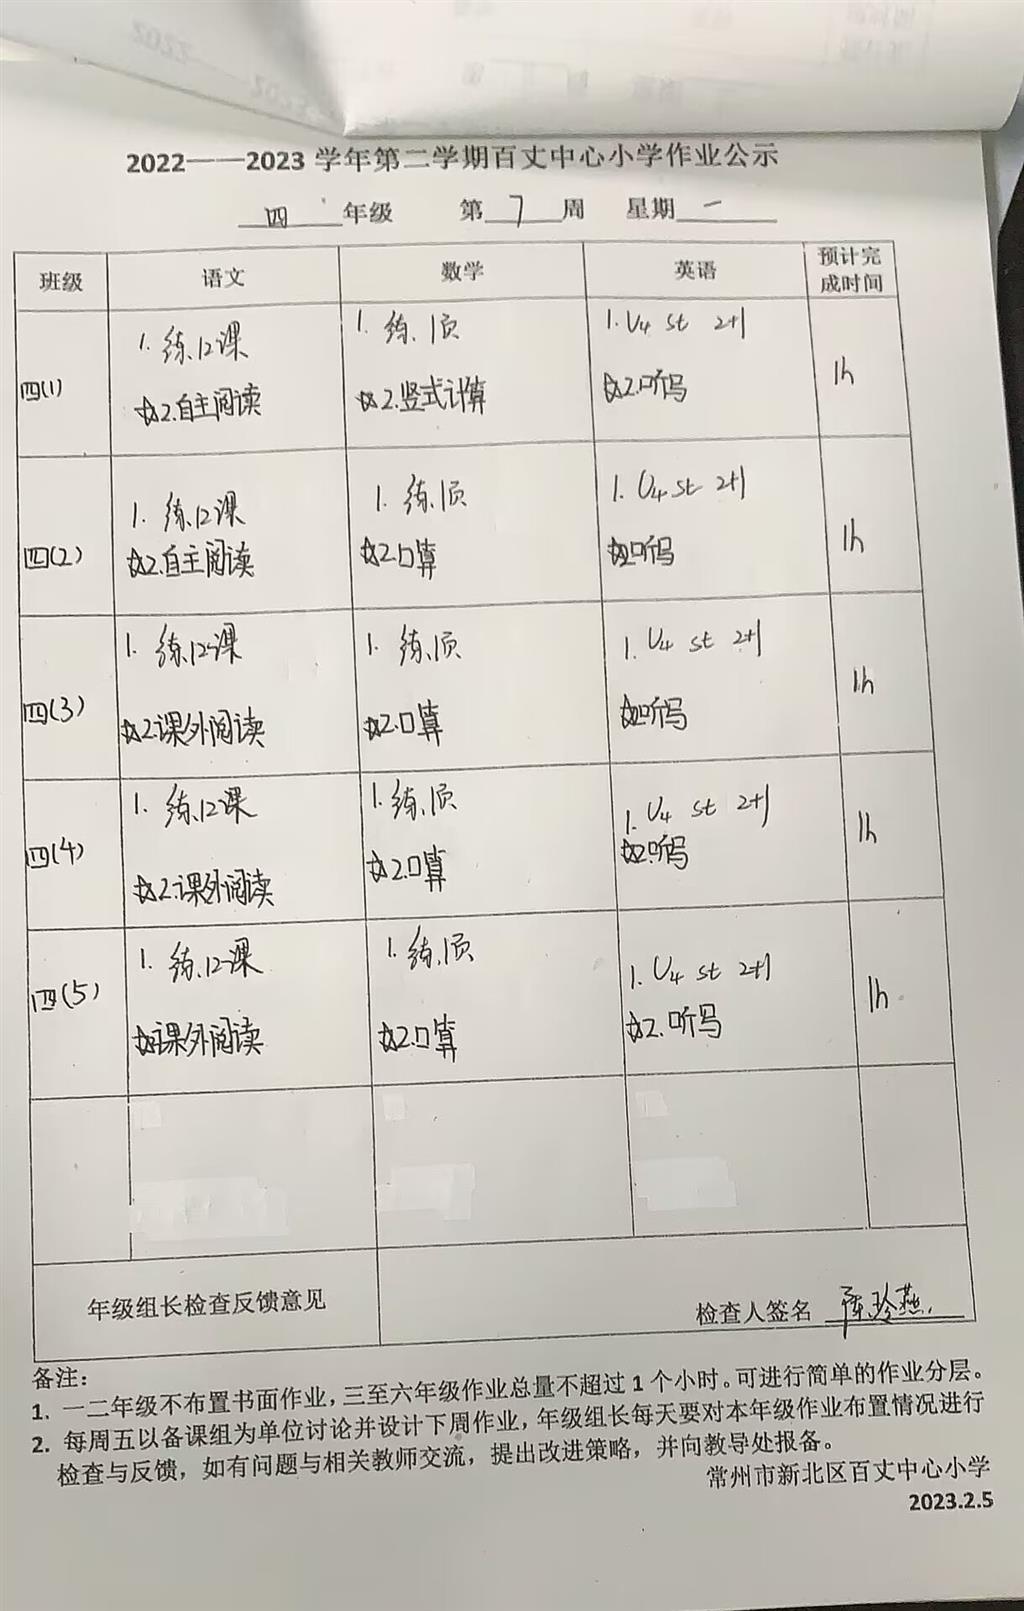 2022——2023 学年第二学期百丈中心小学作业公示
四 年级 第 7 周 星期 一
班级 语文 数学 英语 预计完成时间
四(1) 1. 练.12课 1. 练.1页 1. U4 st 2+1 1h
☆2.自主阅读 ☆2.竖式计算 ☆2.听写
四(2) 1. 练.12课 1. 练.1页 1. U4 st 2+1 1h
☆2.自主阅读 ☆2.口算 ☆2听写
四(3) 1. 练.12课 1. 练.1页 1. U4 st 2+1 1h
☆2.课外阅读 ☆2.口算 ☆2听写
四(4) 1. 练.12课 1. 练.1页 1. U4 st 2+1 1h
☆2.课外阅读 ☆2.口算 ☆2听写
四(5) 1. 练.12课 1. 练.1页 1. U4 st 2+1 1h
☆2课外阅读 ☆2.口算 ☆2.听写
年级组长检查反馈意见 检查人签名 陈玲燕
备注：
1. 一二年级不布置书面作业，三至六年级作业总量不超过 1 个小时。可进行简单的作业分层。
2. 每周五以备课组为单位讨论并设计下周作业，年级组长每天要对本年级作业布置情况进行
检查与反馈，如有问题与相关教师交流，提出改进策略，并向教导处报备。
常州市新北区百丈中心小学
2023.2.5